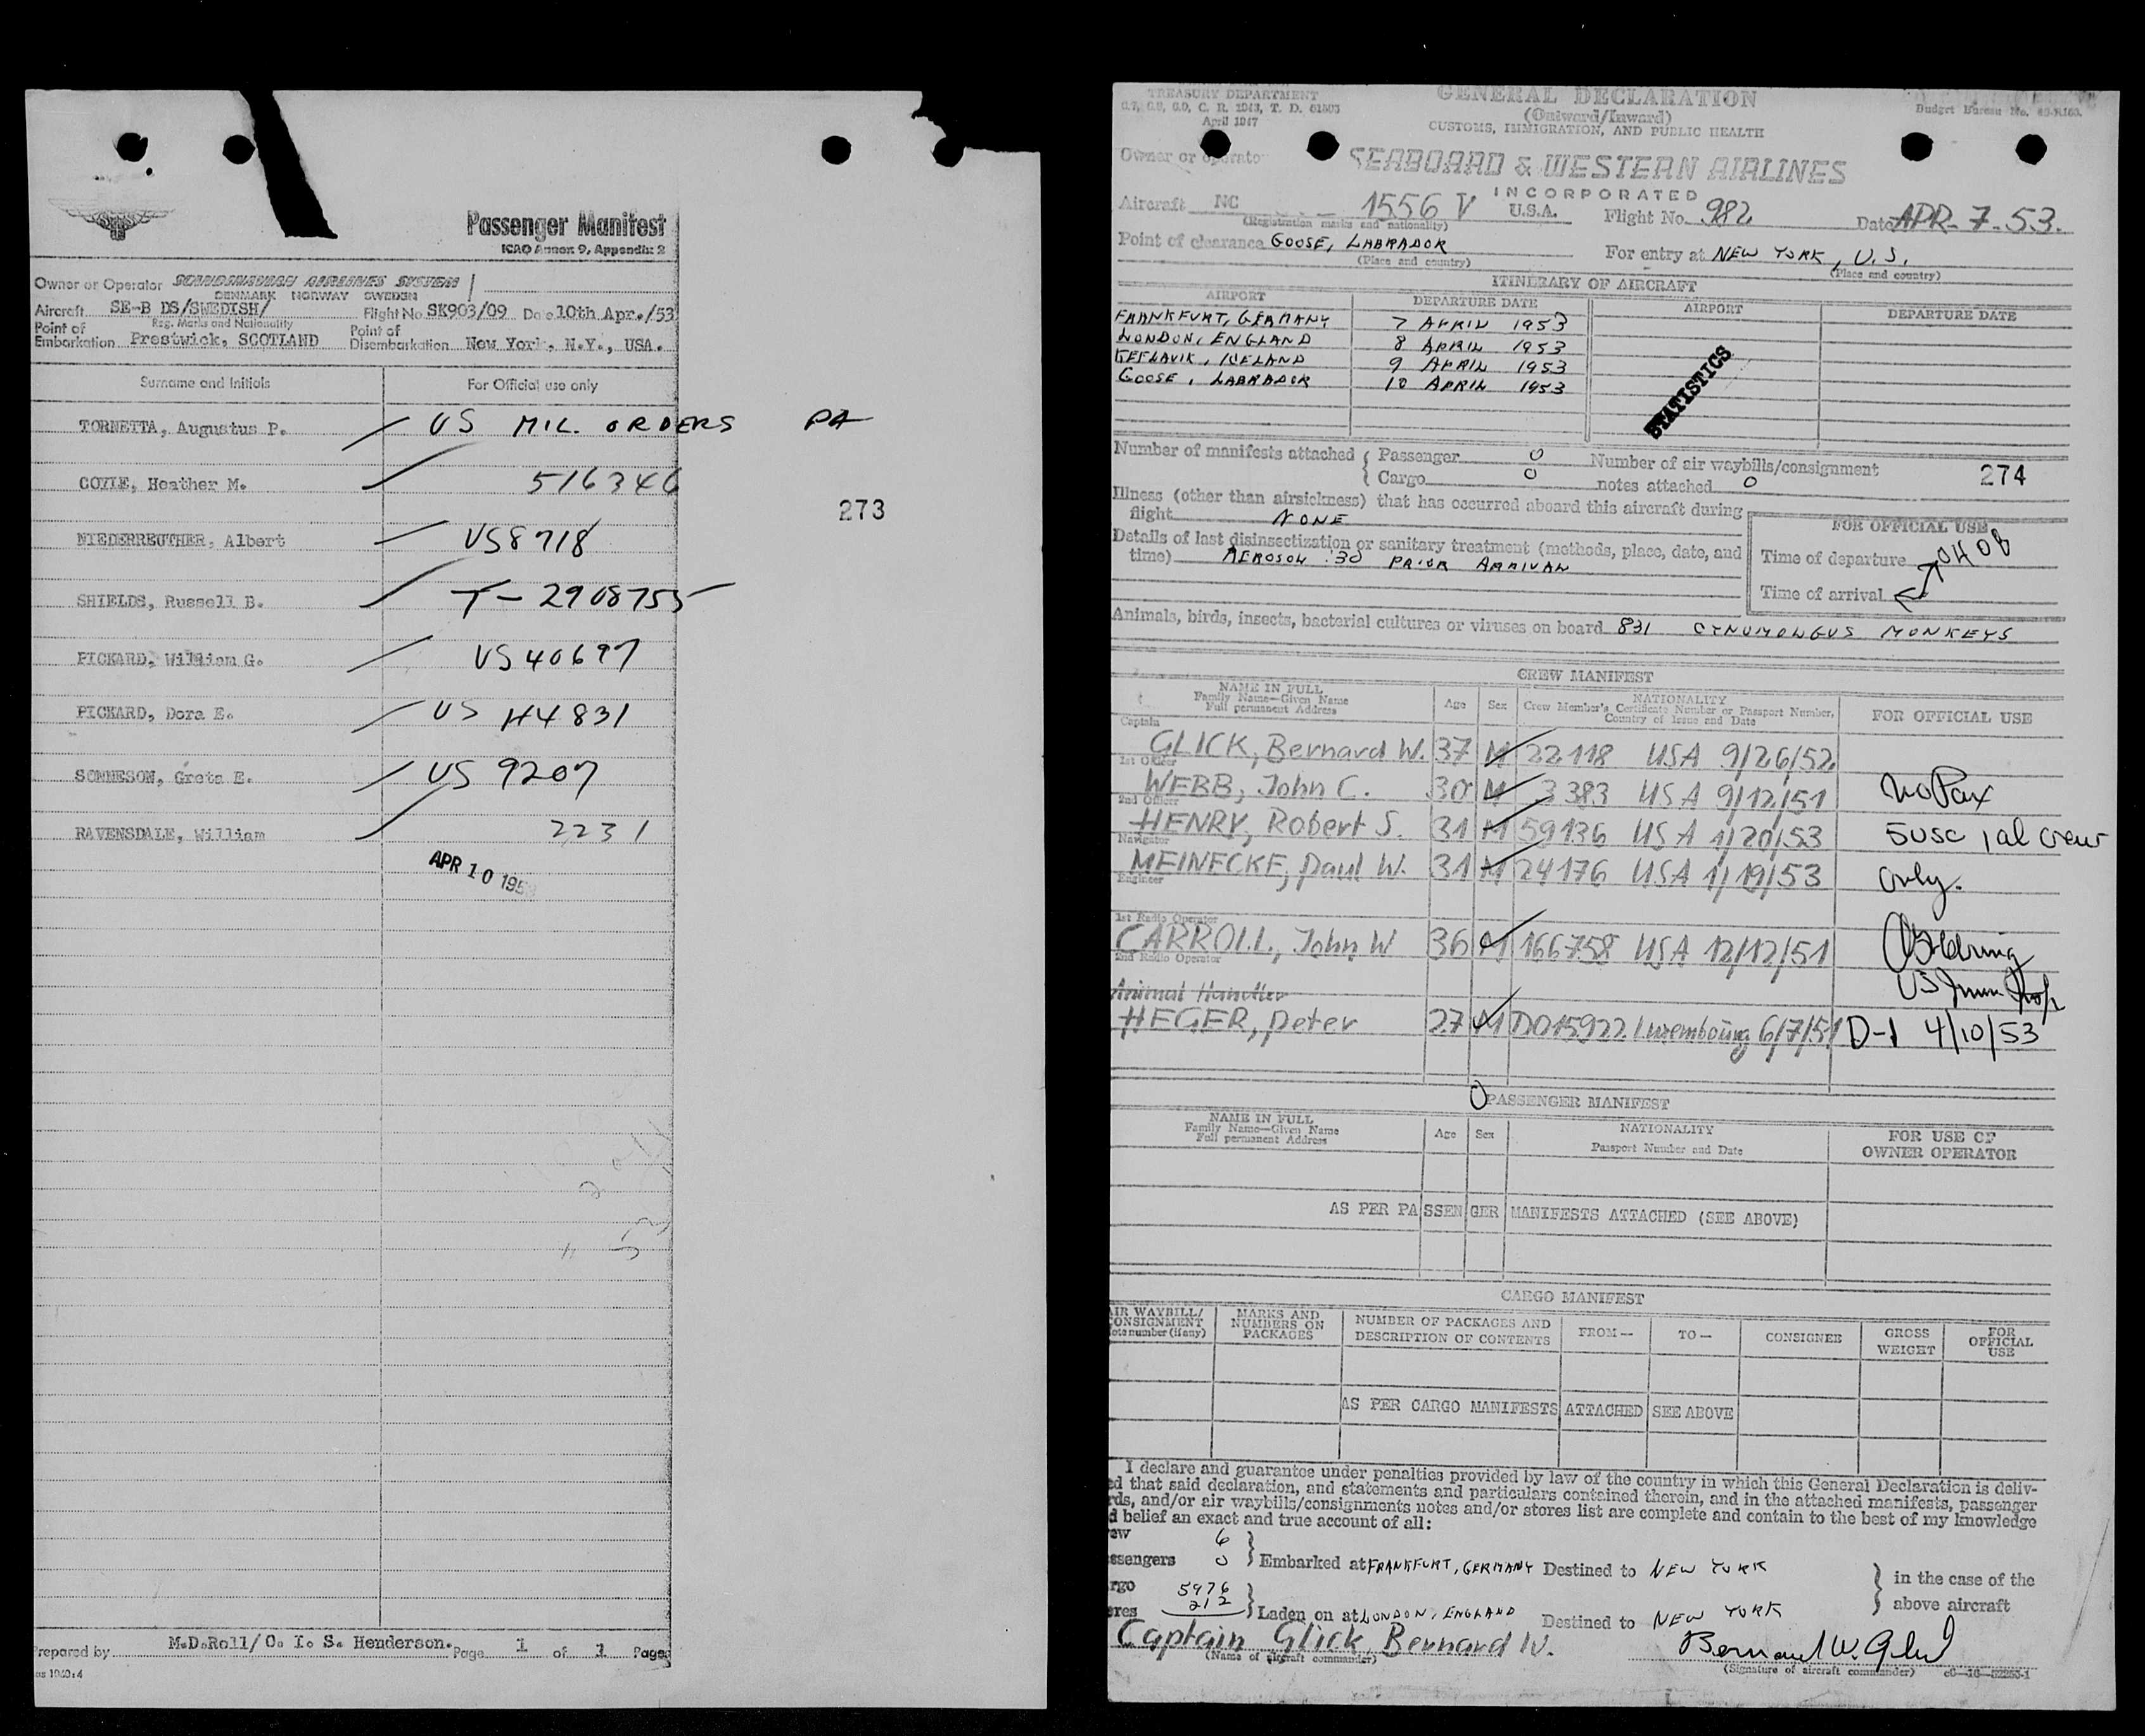 Passenger Manifest
ICAO Annex 9, Appendix 2
Owner or Operator SCANDINAVIAN AIRLINES SYSTEM
DENMARK NORWAY SWEDEN
Aircraft SE-B DS/SWEDISH/ Flight No SK903/09 Da e 10th Apr./53
Reg. Marks and Nationality
Point of Embarkation Prestwick, SCOTLAND Point of Disembarkation New York, N.Y., USA.
Surname and Initials For Official use only
TORNETTA, Augustus P. US MIL. ORDERS PA
COYLE, Heather M. 516346
273
NIEDERREUTHER, Albert US8718
SHIELDS, Russell B. T-2908755
PICKARD, William G. US40697
PICKARD, Dora E. US H4831
SOMMESON, Greta E. US 9207
RAVENSDALE, William 2231
APR 10 195
Prepared by M.D.Roll/C. I. S. Henderson. Page 1 of 1 Pages
TREASURY DEPARTMENT
April 1947
GENERAL DECLARATION
(Outward/Inward)
CUSTOMS, IMMIGRATION, AND PUBLIC HEALTH
Owner or operator SEABOARD & WESTERN AIRLINES
INCORPORATED
Aircraft NC - 1556 V U.S.A. Flight No. 982 Date APR-7-53.
(Registration marks and nationality)
Point of clearance GOOSE, LABRADOR For entry at NEW YORK, U.S.
(Place and country) (Place and country)
ITINERARY OF AIRCRAFT
AIRPORT DEPARTURE DATE AIRPORT DEPARTURE DATE
FRANKFURT, GERMANY 7 APRIL 1953
LONDON, ENGLAND 8 APRIL 1953
KEFLAVIK, ICELAND 9 APRIL 1953
GOOSE, LABRADOR 10 APRIL 1953
STATISTICS
Number of manifests attached { Passenger 0 Number of air waybills/consignment
Cargo 0 notes attached 0 274
Illness (other than airsickness) that has occurred aboard this aircraft during
flight NONE
FOR OFFICIAL USE
Details of last disinsectization or sanitary treatment (methods, place, date, and
time) AEROSOL :30 PRIOR ARRIVAL
Time of departure
Time of arrival
Animals, birds, insects, bacterial cultures or viruses on board 831 CYNUMOLGUS MONKEYS
CREW MANIFEST
NAME IN FULL
Family Name—Given Name
Full permanent Address
Age Sex
NATIONALITY
Crew Member's Certificate Number or Passport Number,
Country of Issue and Date
FOR OFFICIAL USE
Captain
GLICK, Bernard W. 37 M 22118 USA 9/26/52
1st Officer
WEBB, John C. 30 M 3383 USA 9/12/51 no Pax
2nd Officer
HENRY, Robert S. 31 M 59136 USA 1/20/53 5 USC 1 al crew
Navigator
MEINECKE, Paul W. 31 M 24176 USA 1/19/53 only.
Engineer
1st Radio Operator
CARROLL, John W 36 M 166758 USA 12/12/51
2nd Radio Operator
Animal Handler
HEGER, Peter 27 M D015922 Luxembourg 6/7/51 D-1 4/10/53
0 PASSENGER MANIFEST
NAME IN FULL
Family Name—Given Name
Full permanent Address
Age Sex
NATIONALITY
Passport Number and Date
FOR USE OF
OWNER OPERATOR
AS PER PASSENGER MANIFESTS ATTACHED (SEE ABOVE)
CARGO MANIFEST
AIR WAYBILL/
CONSIGNMENT
Note number (if any)
MARKS AND
NUMBERS ON
PACKAGES
NUMBER OF PACKAGES AND
DESCRIPTION OF CONTENTS
FROM— TO— CONSIGNEE
GROSS
WEIGHT
FOR
OFFICIAL
USE
AS PER CARGO MANIFESTS ATTACHED SEE ABOVE
I declare and guarantee under penalties provided by law of the country in which this General Declaration is deliv-
ed that said declaration, and statements and particulars contained therein, and in the attached manifests, passenger
rds, and/or air waybills/consignments notes and/or stores list are complete and contain to the best of my knowledge
d belief an exact and true account of all:
ew 6
ssengers 0 } Embarked at FRANKFURT, GERMANY Destined to NEW YORK } in the case of the
rgo 5976
ores 212 } Laden on at LONDON, ENGLAND Destined to NEW YORK above aircraft
Captain Glick, Bernard W. Bernard W. Glick
(Name of aircraft commander) (Signature of aircraft commander)